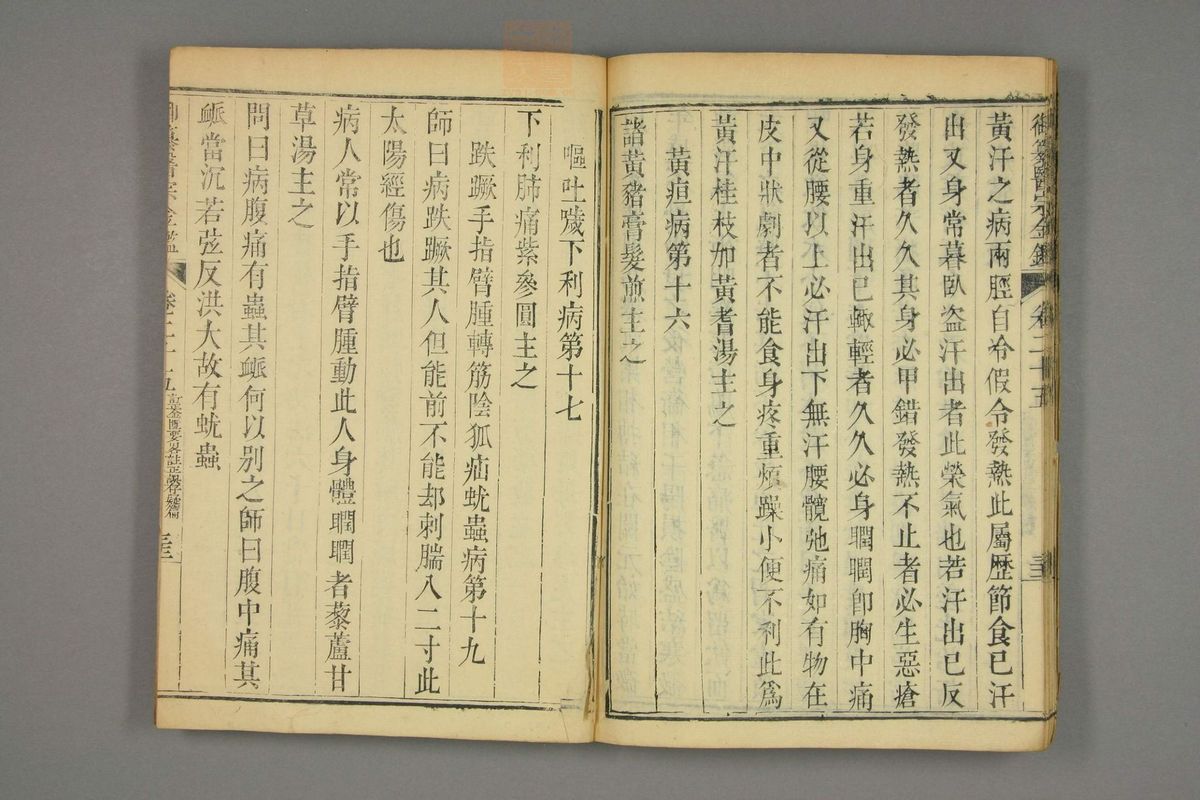 御纂醫宗金鑑 卷二十五
黃汗之病兩脛自冷假令發熱此屬歷節食已汗
出又身常暮臥盜汗出者此榮氣也若汗出已反
發熱者久久其身必甲錯發熱不止者必生惡瘡
若身重汗出已輙輕者久久必身瞤瞤卽胸中痛
又從腰以上必汗出下無汗腰髖弛痛如有物在
皮中狀劇者不能食身疼重煩躁小便不利此爲
黃汗桂枝加黃耆湯主之
黃疸病第十六
諸黃豬膏髮煎主之
嘔吐噦下利病第十七
下利肺痛紫參圓主之
趺蹶手指臂腫轉筋陰狐疝蚘蟲病第十九
師曰病趺蹶其人但能前不能却刺腨入二寸此
太陽經傷也
病人常以手指臂腫動此人身體瞤瞤者藜蘆甘
草湯主之
問曰病腹痛有蟲其䘑何以別之師曰腹中痛其
䘑當沉若弦反洪大故有蚘蟲
御纂醫宗金鑑 卷二十五